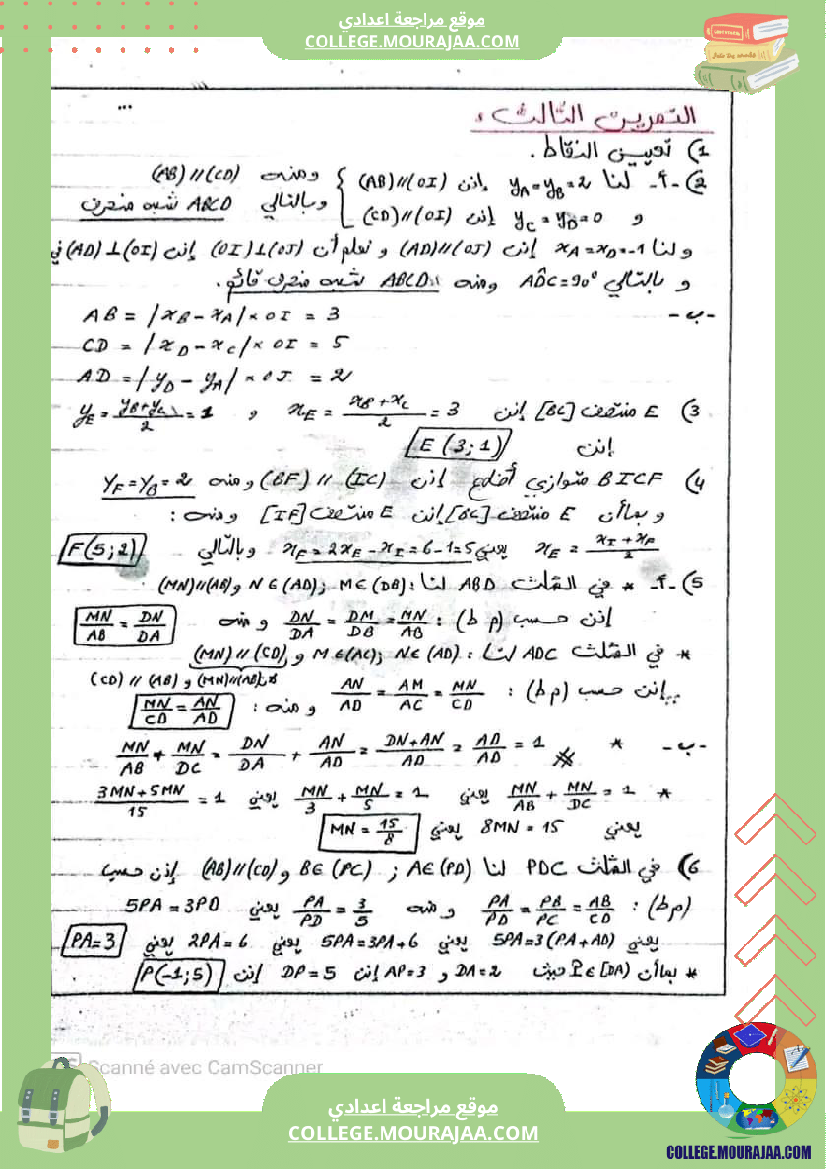 موقع مراجعة اعدادي
COLLEGE.MOURAJAA.COM
...
التمرين الثالث:
1) تعيين النقاط.
2) -أ- لنا y_A = y_B = 2 إذن (AB)//(OI) ومنه (AB)//(CD)
و y_C = y_D = 0 إذن (CD)//(OI) وبالتالي ABCD شبه منحرف
ولنا x_A = x_D = -1 إذن (AD)//(OJ) و نعلم أن (OI)⊥(OJ) إذن (AD)⊥(OI)
و بالتالي ADC = 90° ومنه ABCD شبه منحرف قائم.
-ب- AB = |x_B - x_A| × OI = 3
CD = |x_D - x_C| × OI = 5
AD = |y_D - y_A| × OJ = 2
3) E منتصف [BC] إذن x_E = (x_B + x_C)/2 = 3 و y_E = (y_B + y_C)/2 = 1
إذن E(3;1)
4) BICF متوازي أضلاع إذن (BF) // (IC) ومنه y_F = y_B = 2
و بما أن E منتصف [BC] إذن E منتصف [IF] ومنه :
x_E = (x_I + x_F)/2 يعني x_F = 2x_E - x_I = 6-1 = 5 وبالتالي F(5;2)
5) -أ- * في المثلث ABD لنا : M∈(DB) ; N∈(AD) و (MN)//(AB)
إذن حسب (p b) : DN/DA = DM/DB = MN/AB ومنه MN/AB = DN/DA
* في المثلث ADC لنا : N∈(AD) ; M∈(AC) و (MN)//(CD)
(CD)//(AB) و (MN)//(AB)
إذن حسب (p b) : AN/AD = AM/AC = MN/CD ومنه : MN/CD = AN/AD
-ب- * MN/AB + MN/DC = DN/DA + AN/AD = DN+AN/AD = AD/AD = 1
* MN/AB + MN/DC = 1 يعني MN/3 + MN/5 = 1 يعني 3MN+5MN/15 = 1
يعني 8MN = 15 يعني MN = 15/8
6) في المثلث PDC لنا A∈(PD) ; B∈(PC) و (AB)//(CD) إذن حسب
(p b) : PA/PD = PB/PC = AB/CD ومنه PA/PD = 3/5 يعني 5PA = 3PD
يعني 5PA = 3(PA+AD) يعني 5PA = 3PA+6 يعني 2PA = 6 يعني PA = 3
* بما أن P∈[DA) حيث DA = 2 و AP = 3 إذن DP = 5 إذن P(-1;5)
Scanné avec CamScanner
موقع مراجعة اعدادي
COLLEGE.MOURAJAA.COM
COLLEGE.MOURAJAA.COM